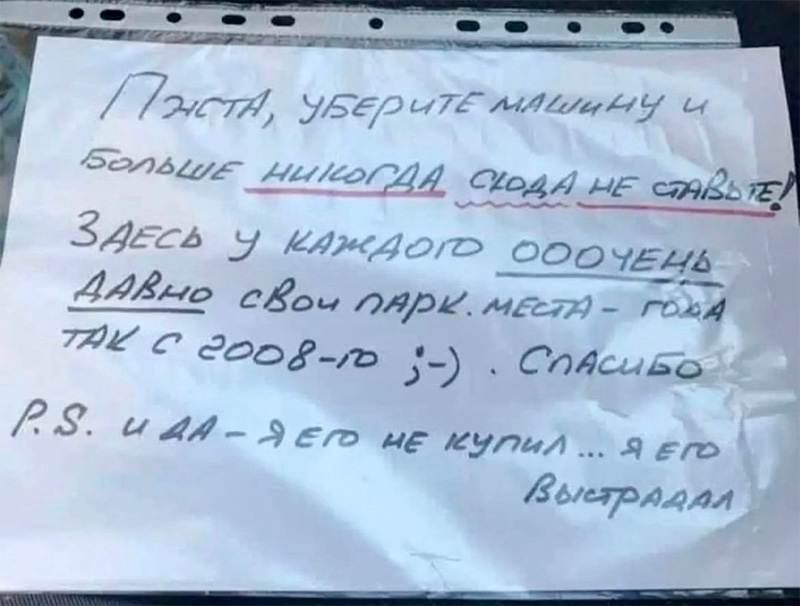 Пжста, уберите машину и
больше никогда сюда не ставьте!
Здесь у каждого ооочень
давно свои парк. места - года
так с 2008-го ;-) . Спасибо
P.S. и да - я его не купил... я его
выстрадал